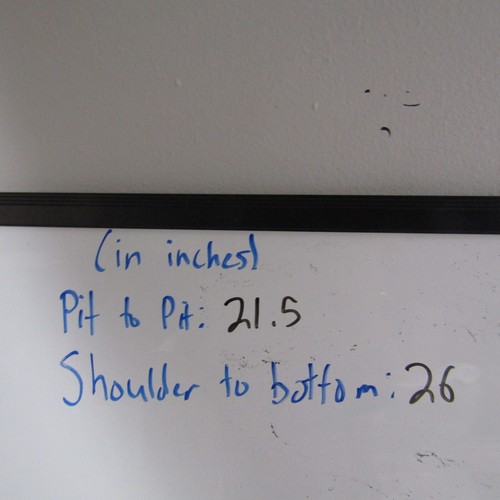 (in inches)
Pit to Pit: 21.5
Shoulder to bottom: 26